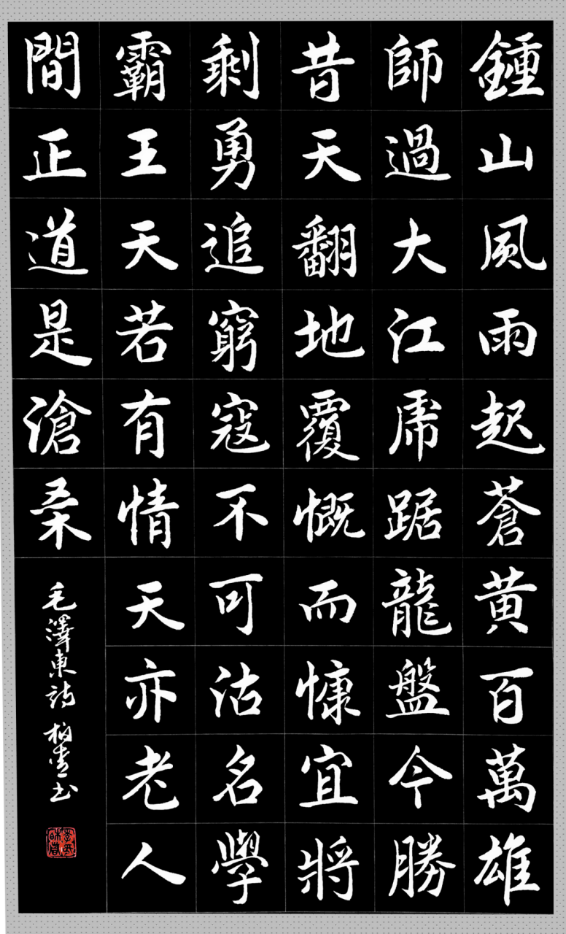 鍾山風雨起蒼黄百萬雄
師過大江虎踞龍盤今勝
昔天翻地覆慨而慷宜將
剩勇追窮寇不可沽名學
霸王天若有情天亦老人
間正道是滄桑
毛澤東詩 柏青书